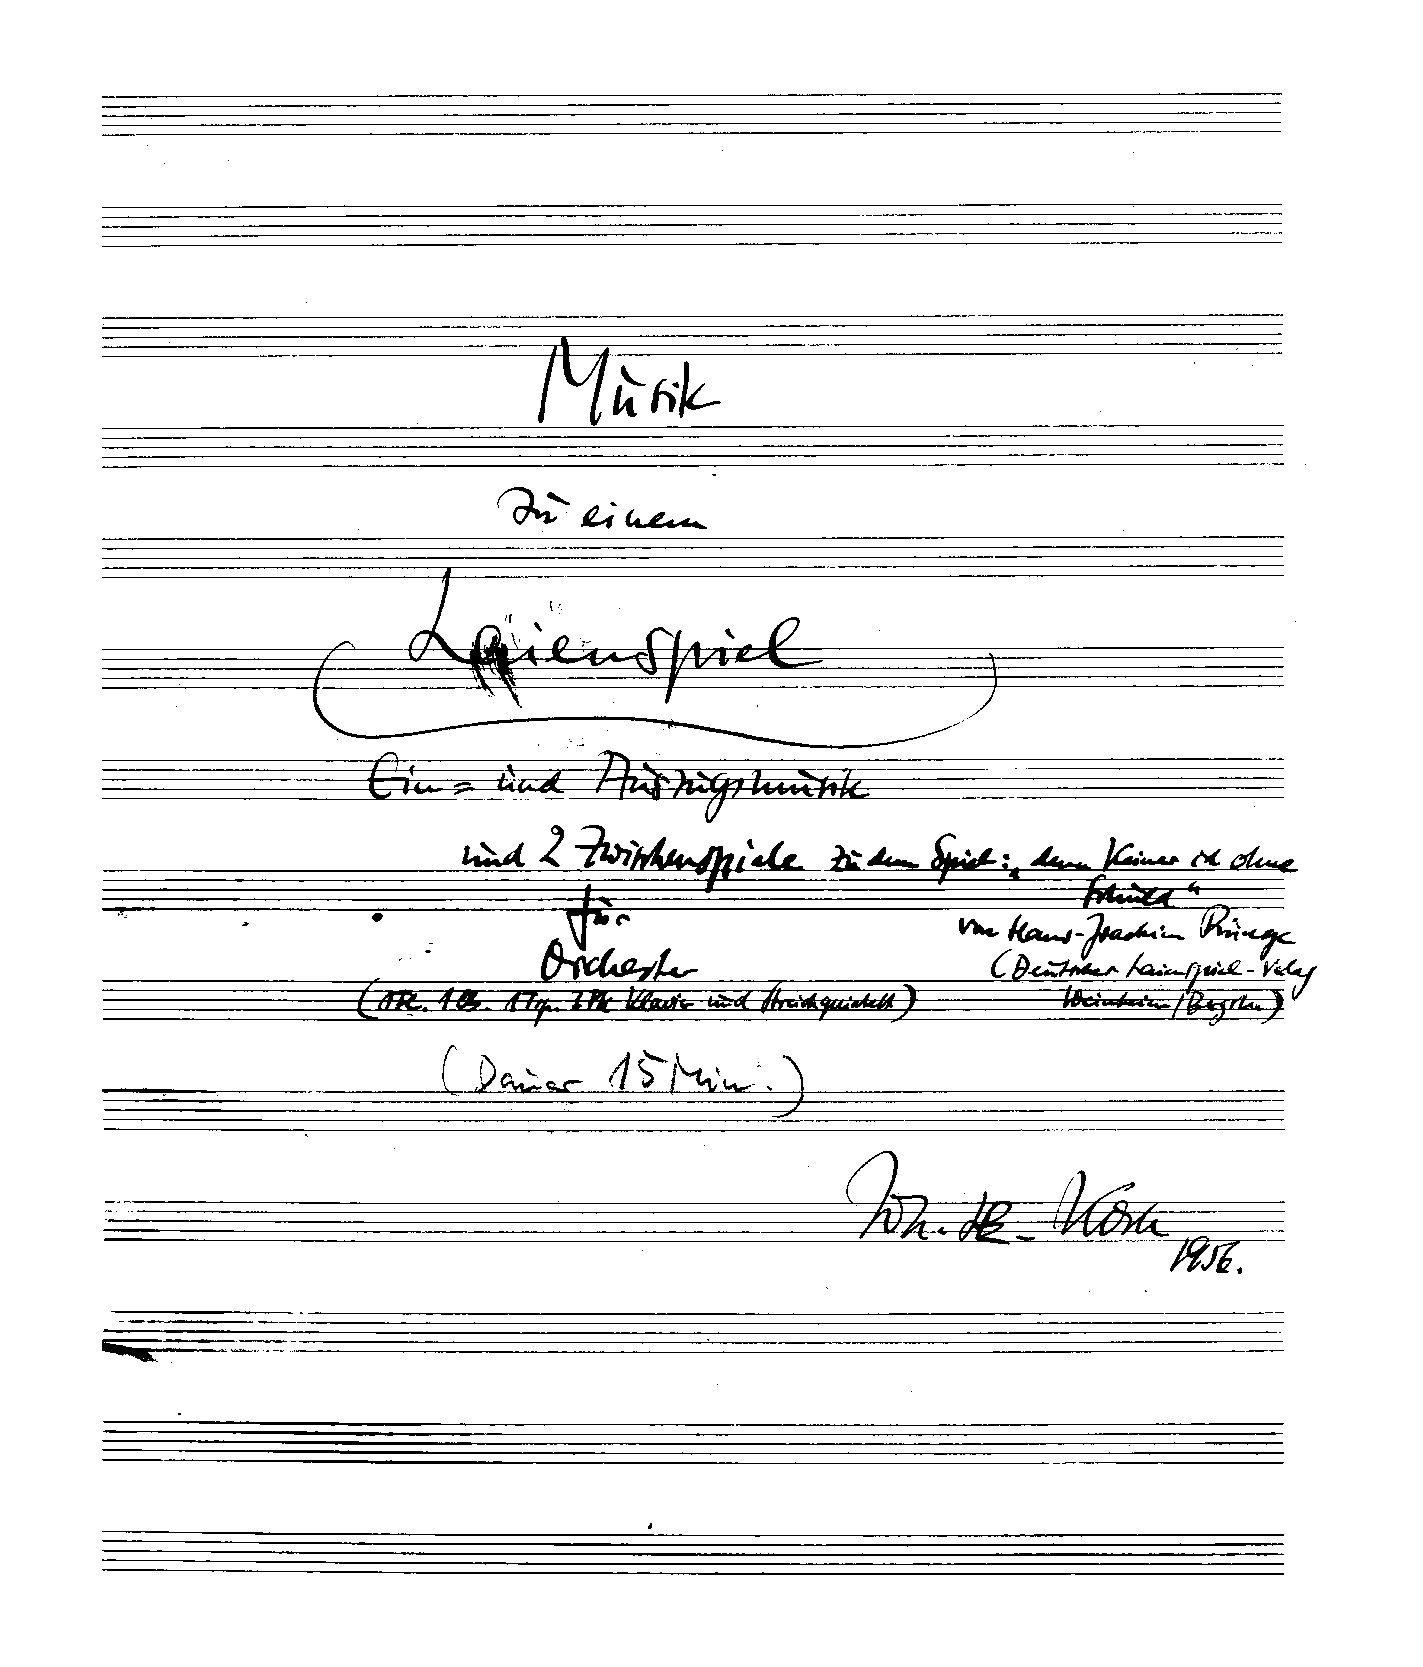 Musik
zu einem
Laienspiel
Ein= und Auszugsmusik
und 2 Zwischenspiele zu dem Spiel: „denn Keiner ist ohne
Schuld“
für
von Hans-Joachim
Orchester
(Deutscher Laienspiel-Verlag
(1 Fl. 1 Ob. 1 Trp. 2 Pk Klavier und Streichquintett)
Weinheim/Bergstr.)
(Dauer 15 Min.)
Joh. H. E. Koch
1956.